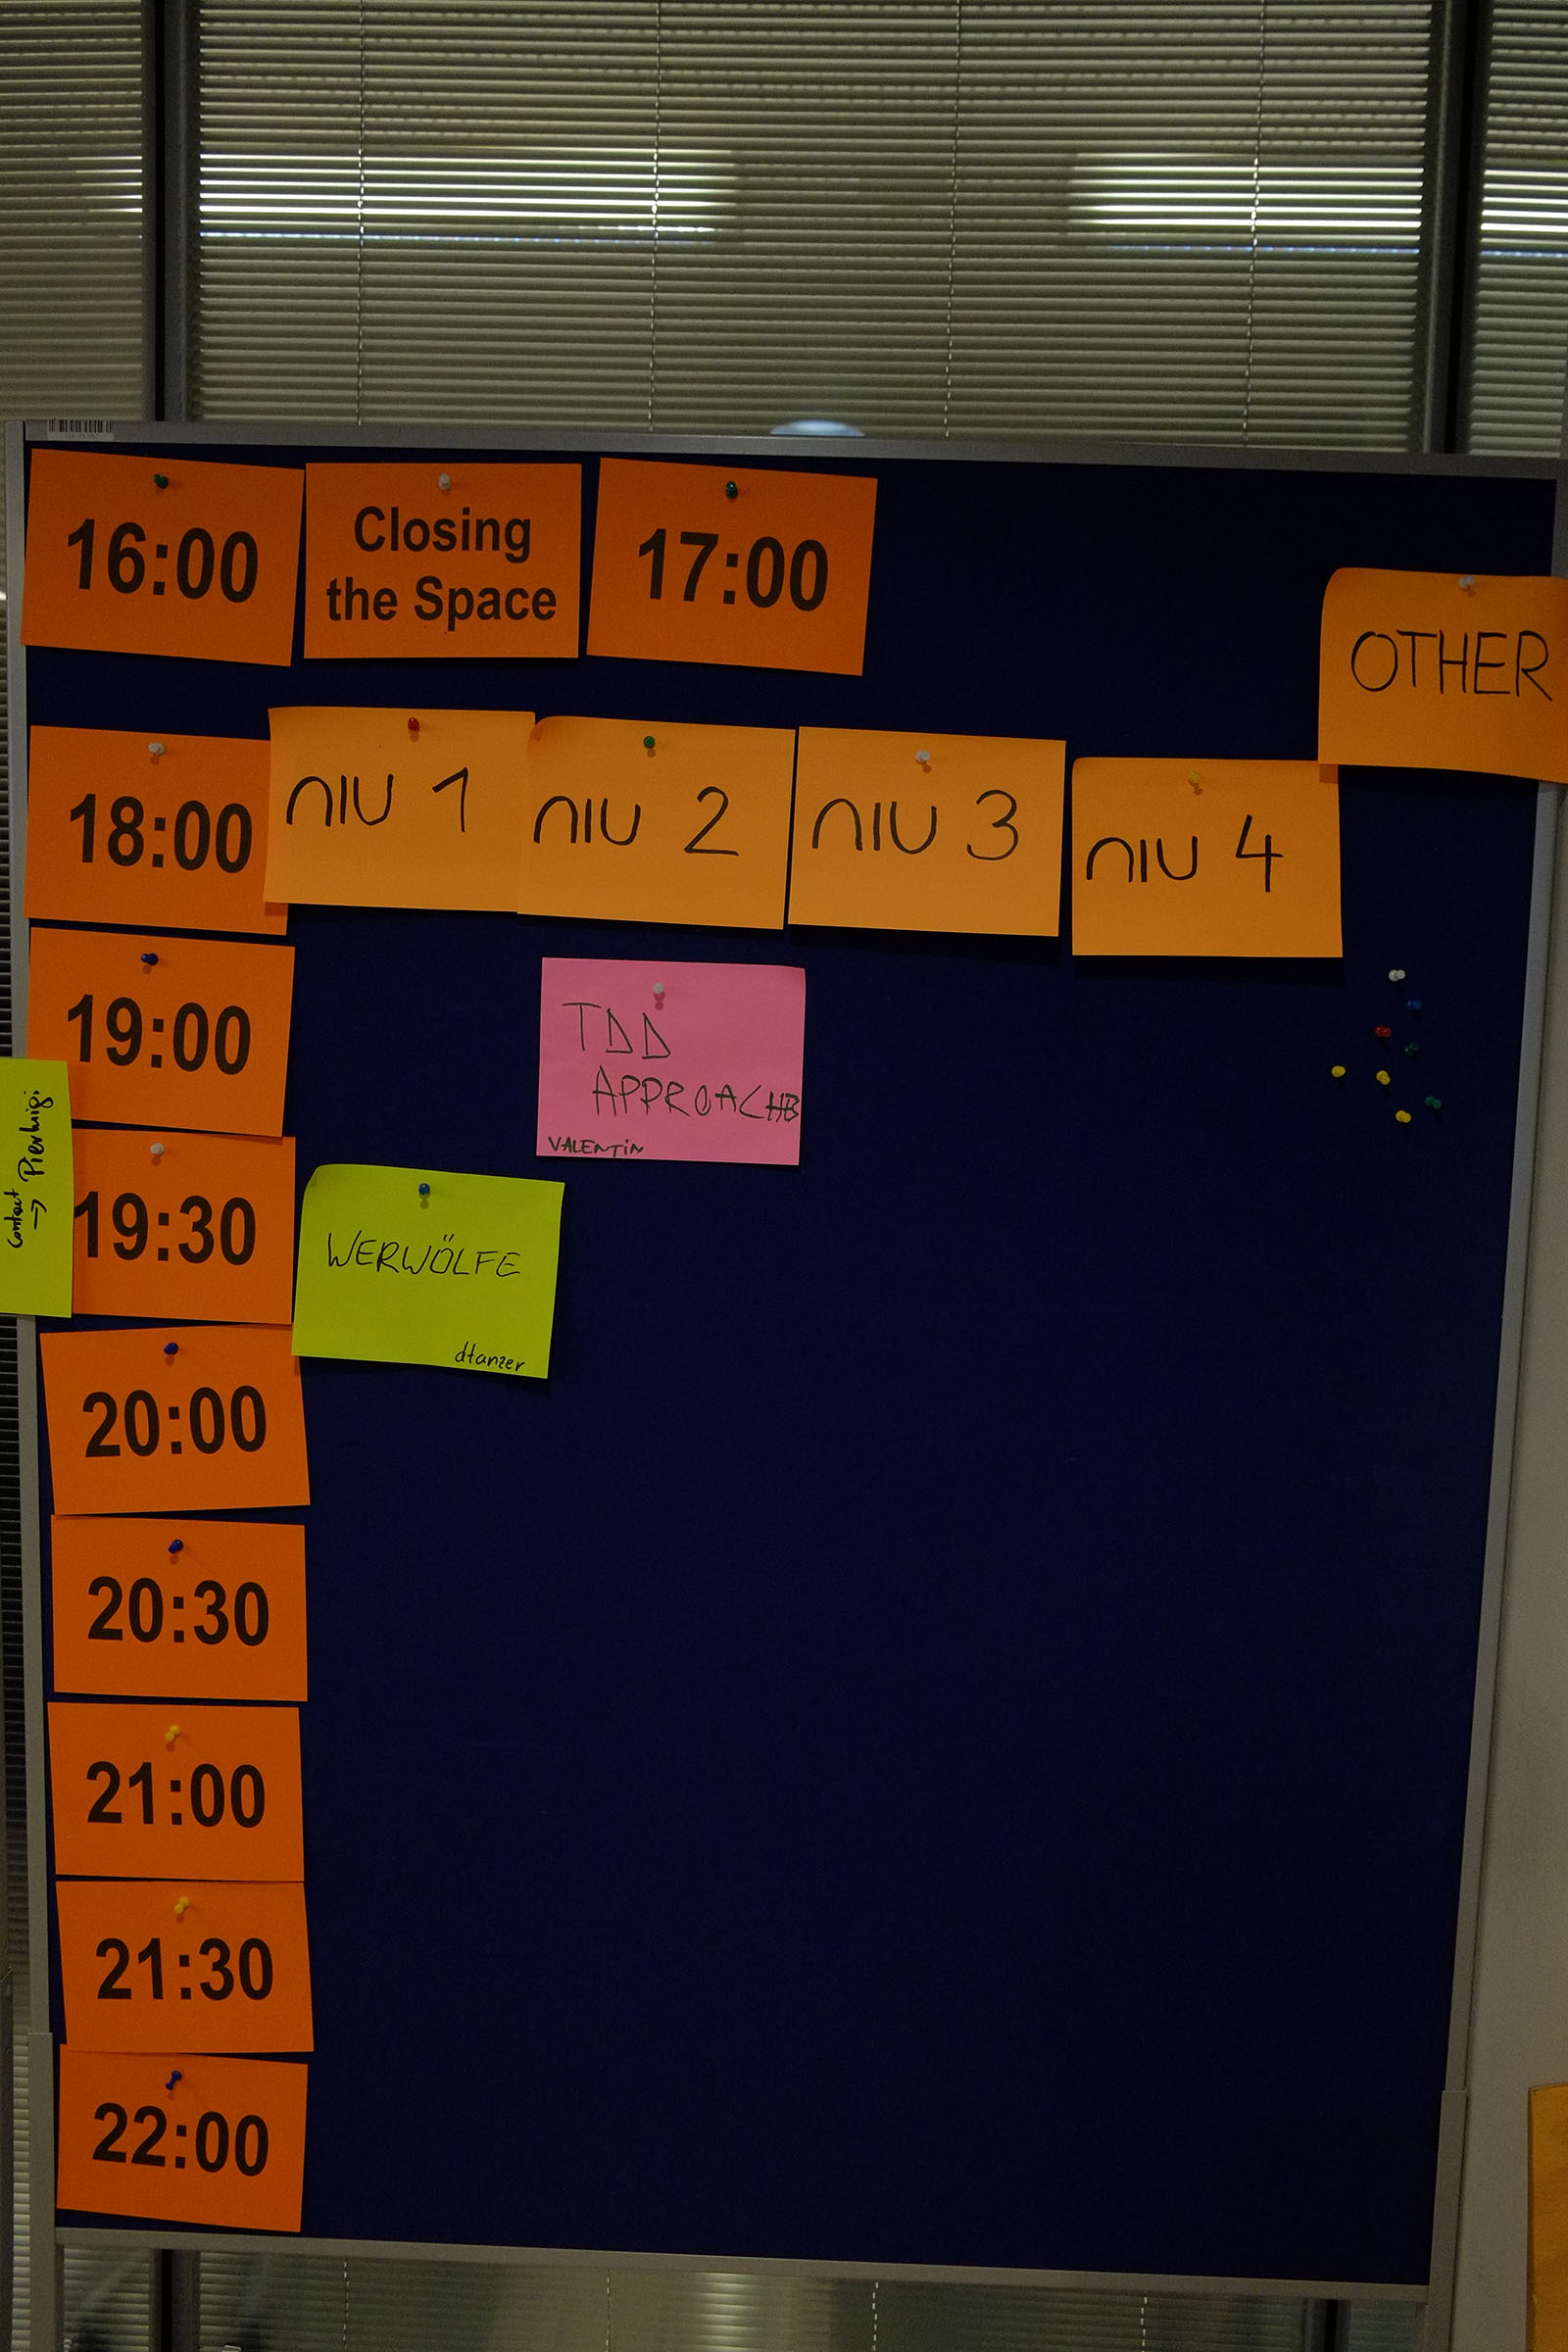 16:00
Closing
the Space
17:00
OTHER
18:00
nIU 1
nIU 2
nIU 3
nIU 4
19:00
TDD
APPROACH
VALENTIN
Contact
→ Pierluigi
19:30
WERWÖLFE
dtanzer
20:00
20:30
21:00
21:30
22:00